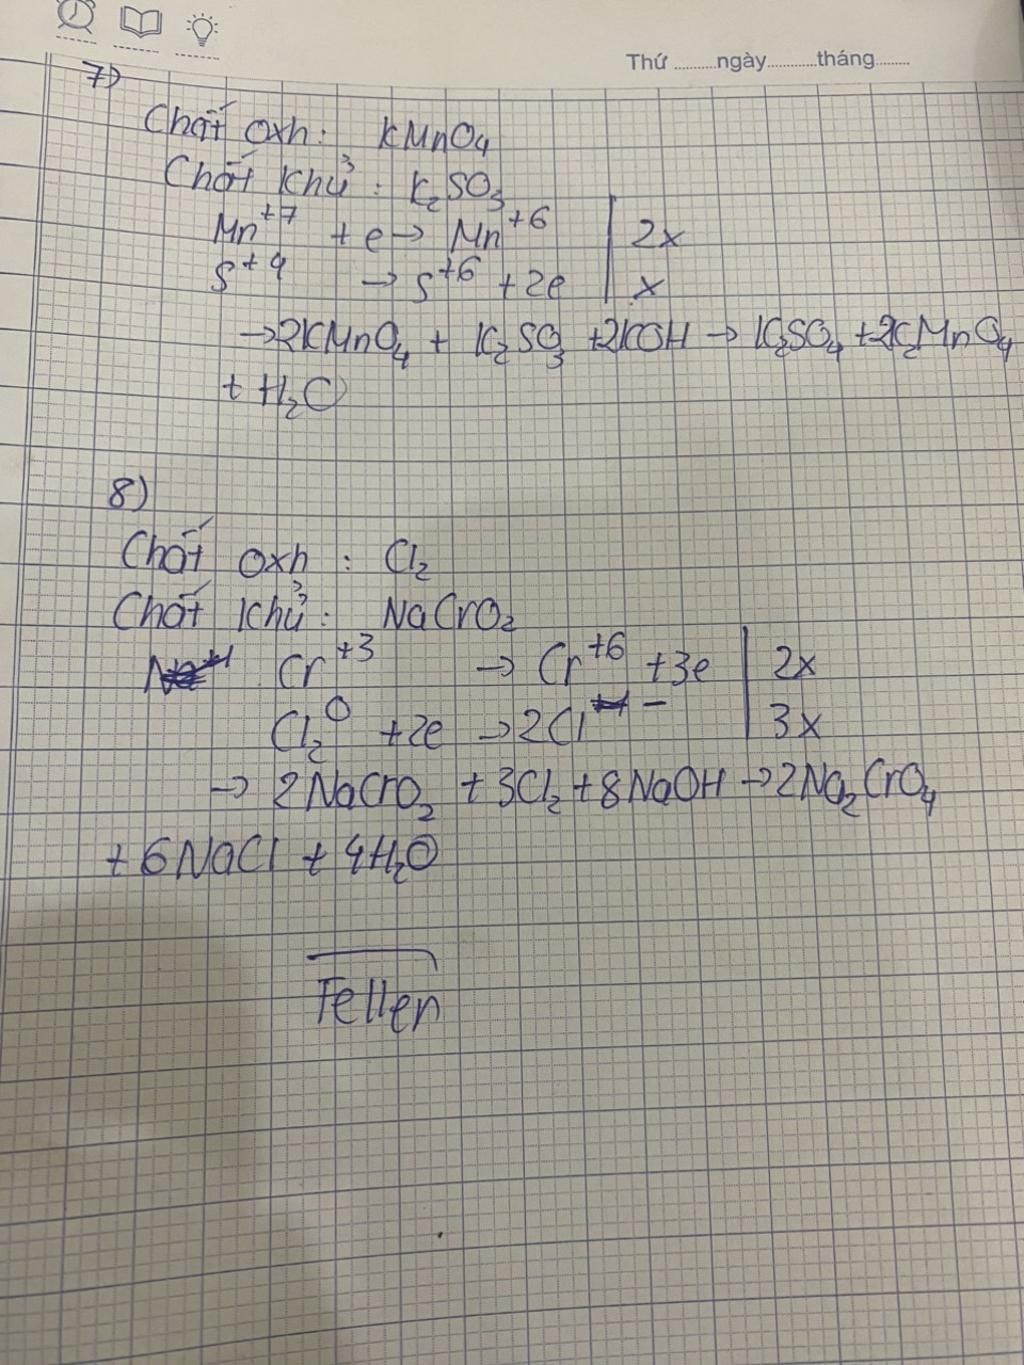 Thứ..........ngày............tháng........
7)
Chất oxh: KMnO₄
Chất khử: K₂SO₃
Mn⁺⁷ + e → Mn⁺⁶ | 2x
S⁺⁴ → S⁺⁶ + 2e | x
→ 2KMnO₄ + K₂SO₃ + 2KOH → K₂SO₄ + 2K₂MnO₄
+ H₂O
8)
Chất oxh: Cl₂
Chất khử: NaCrO₂
Cr⁺³ → Cr⁺⁶ + 3e | 2x
Cl₂⁰ + 2e → 2Cl⁻ | 3x
→ 2NaCrO₂ + 3Cl₂ + 8NaOH → 2Na₂CrO₄
+ 6NaCl + 4H₂O